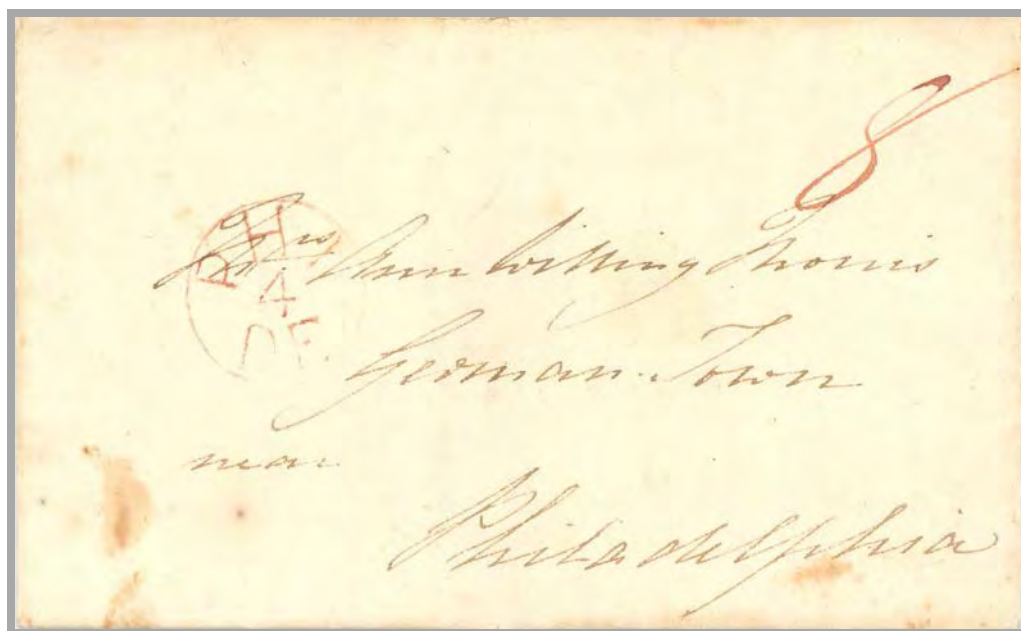 8
PHI
4
DE
Mrs Ann Willing Morris
German Town
near
Philadelphia